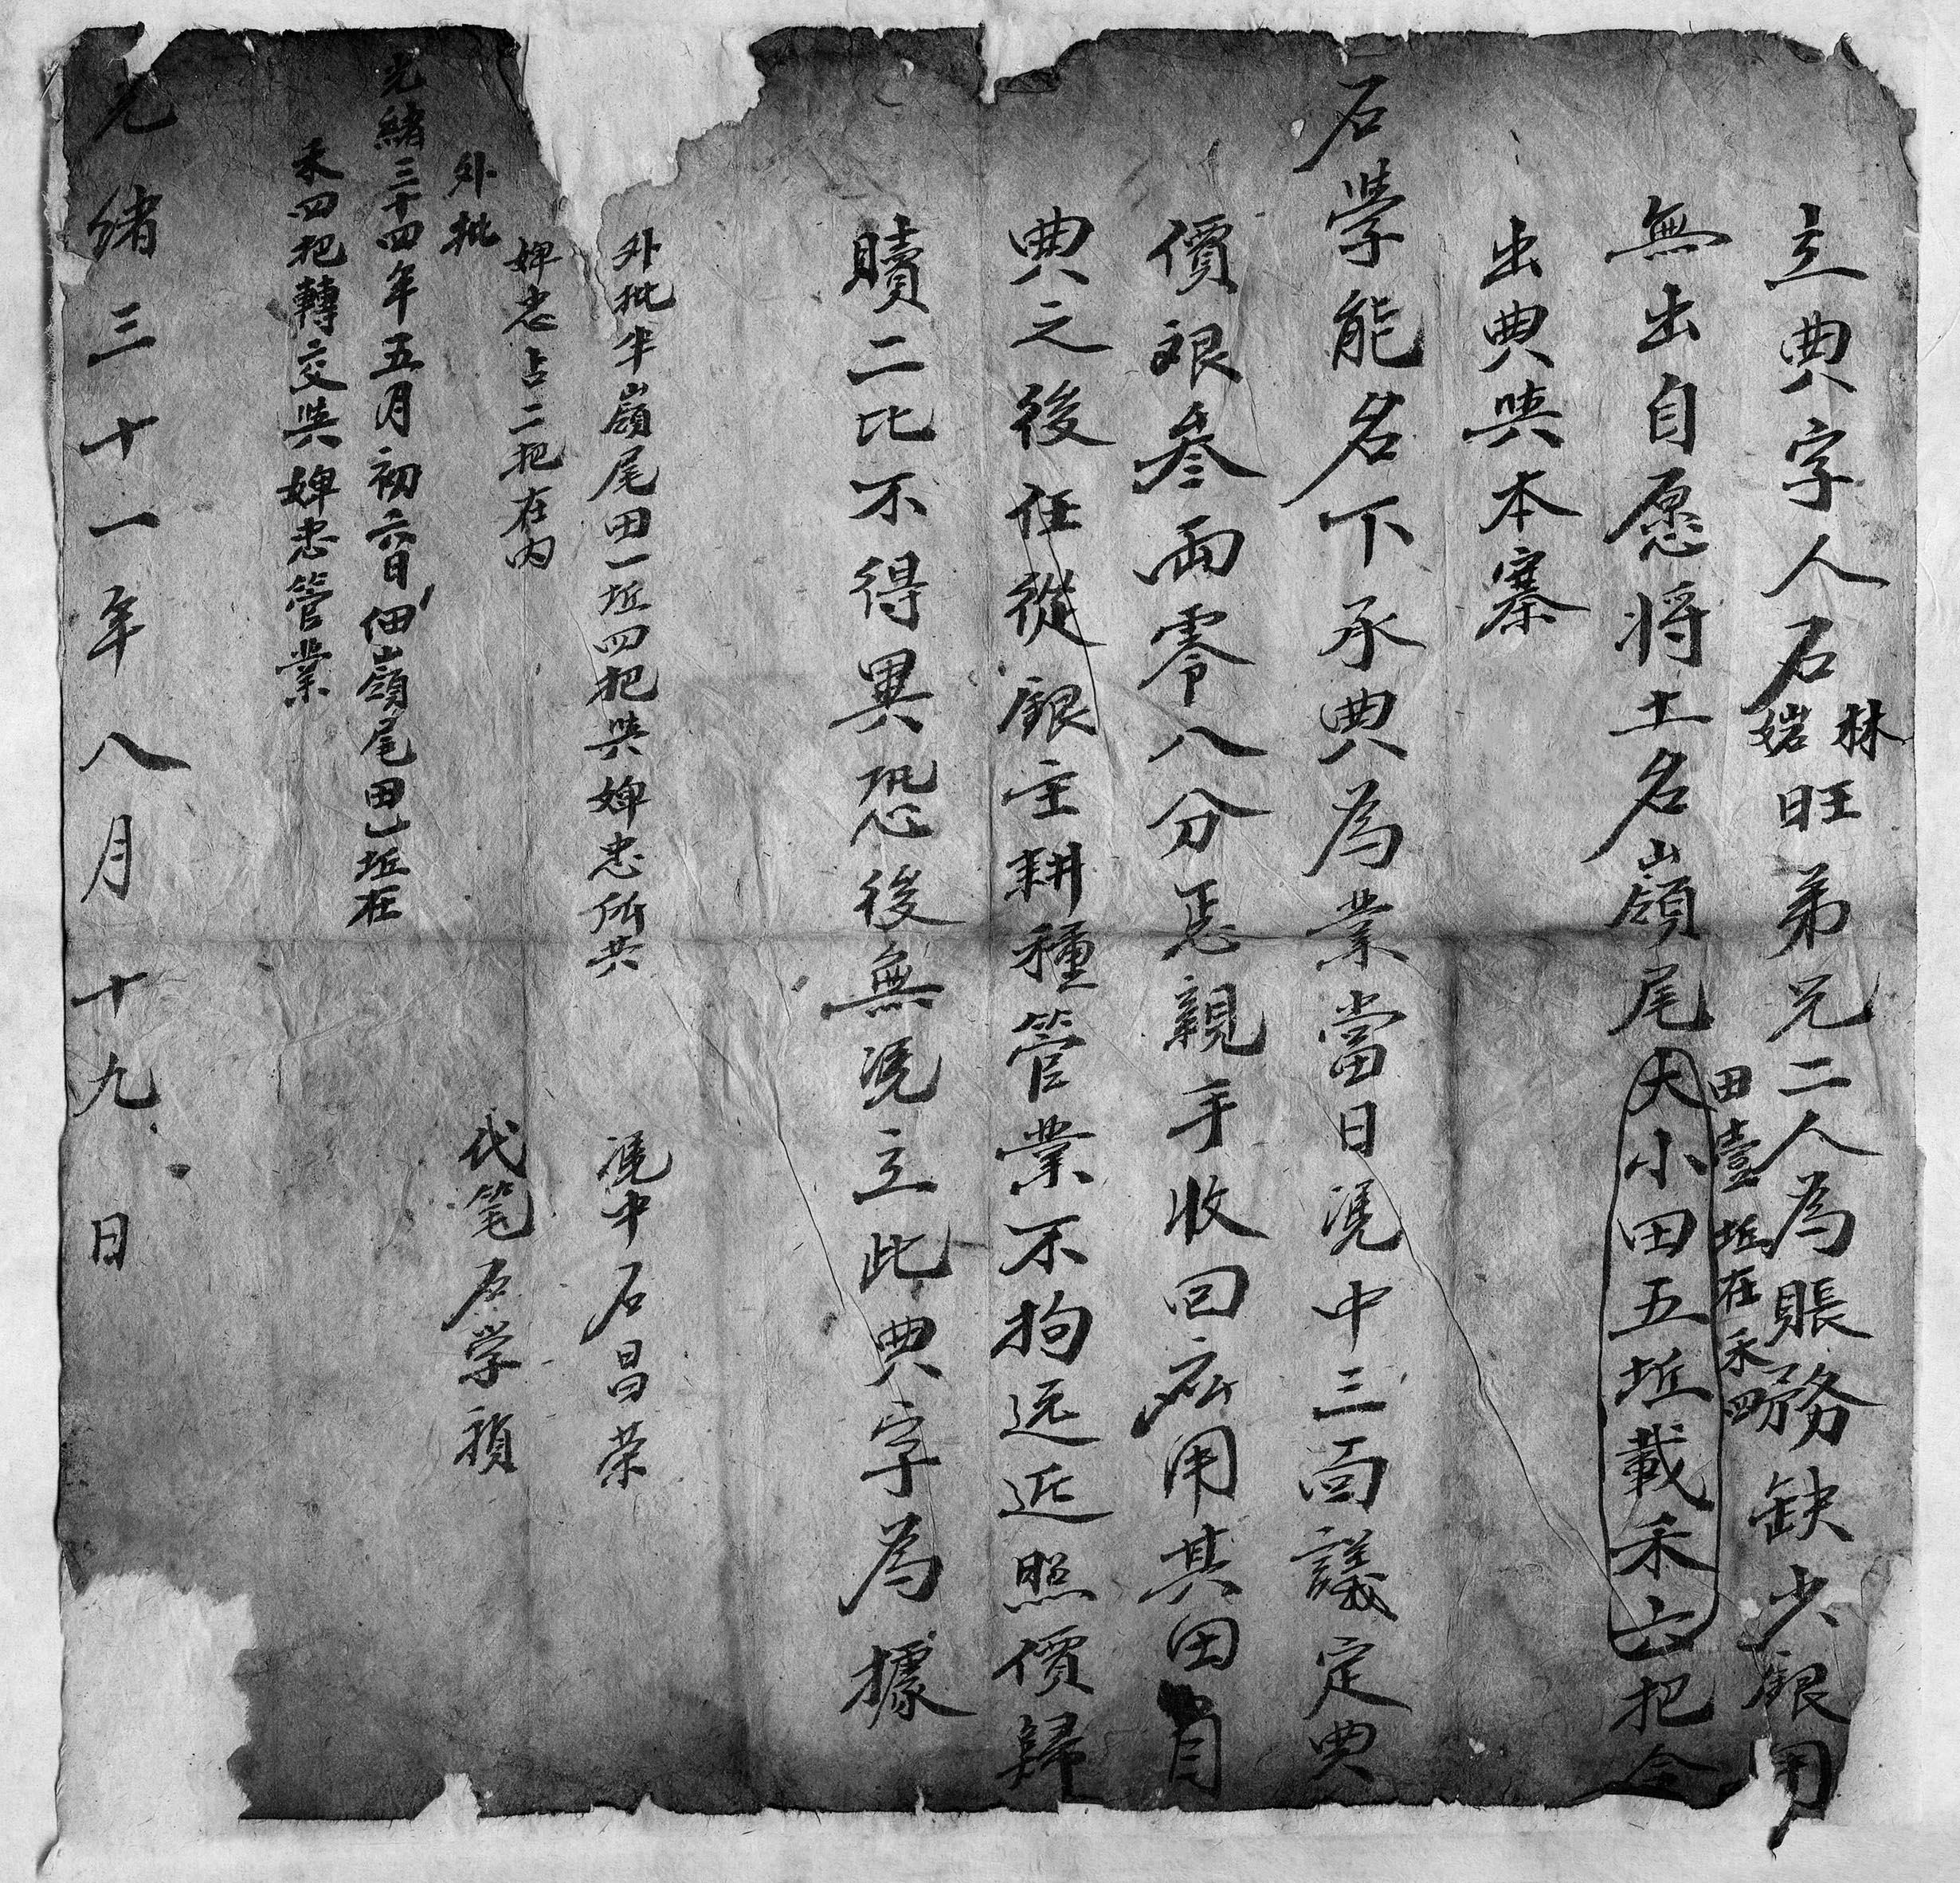 立典字人石林㛗旺弟兄二人為賬務缺少銀用
田壹坵在禾四
無出自愿将土名嶺尾大小田五坵載禾六把今
出典與本寨
石學能名下承典為業當日凴中三面議定典
價艮叁両零八分悉親手收回應用其田自
典之後任從銀主耕種管業不拘远近照價歸
贖二比不得異恐後無凴立此典字為據
外批半嶺尾田一坵四把與婢忠所共
婢忠占二把在内
凴中石昌荣
代笔石学禎
外批
光緒三十四年五月初六日佃嶺尾田乙坵在
禾四把轉交與婢忠管業
光緒三十一年八月十九日